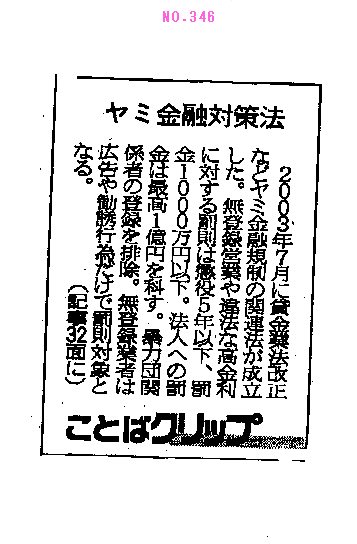 NO.346
ヤミ金融対策法
2003年7月に貸金業法改正
などヤミ金融規制の関連法が成立
した。無登録営業や違法な高金利
に対する罰則は懲役5年以下、罰
金1000万円以下。法人への罰
金は最高1億円を科す。暴力団関
係者の登録を排除。無登録業者は
広告や勧誘行為だけで罰則対象と
なる。
(記事32面に)
ことばクリップ